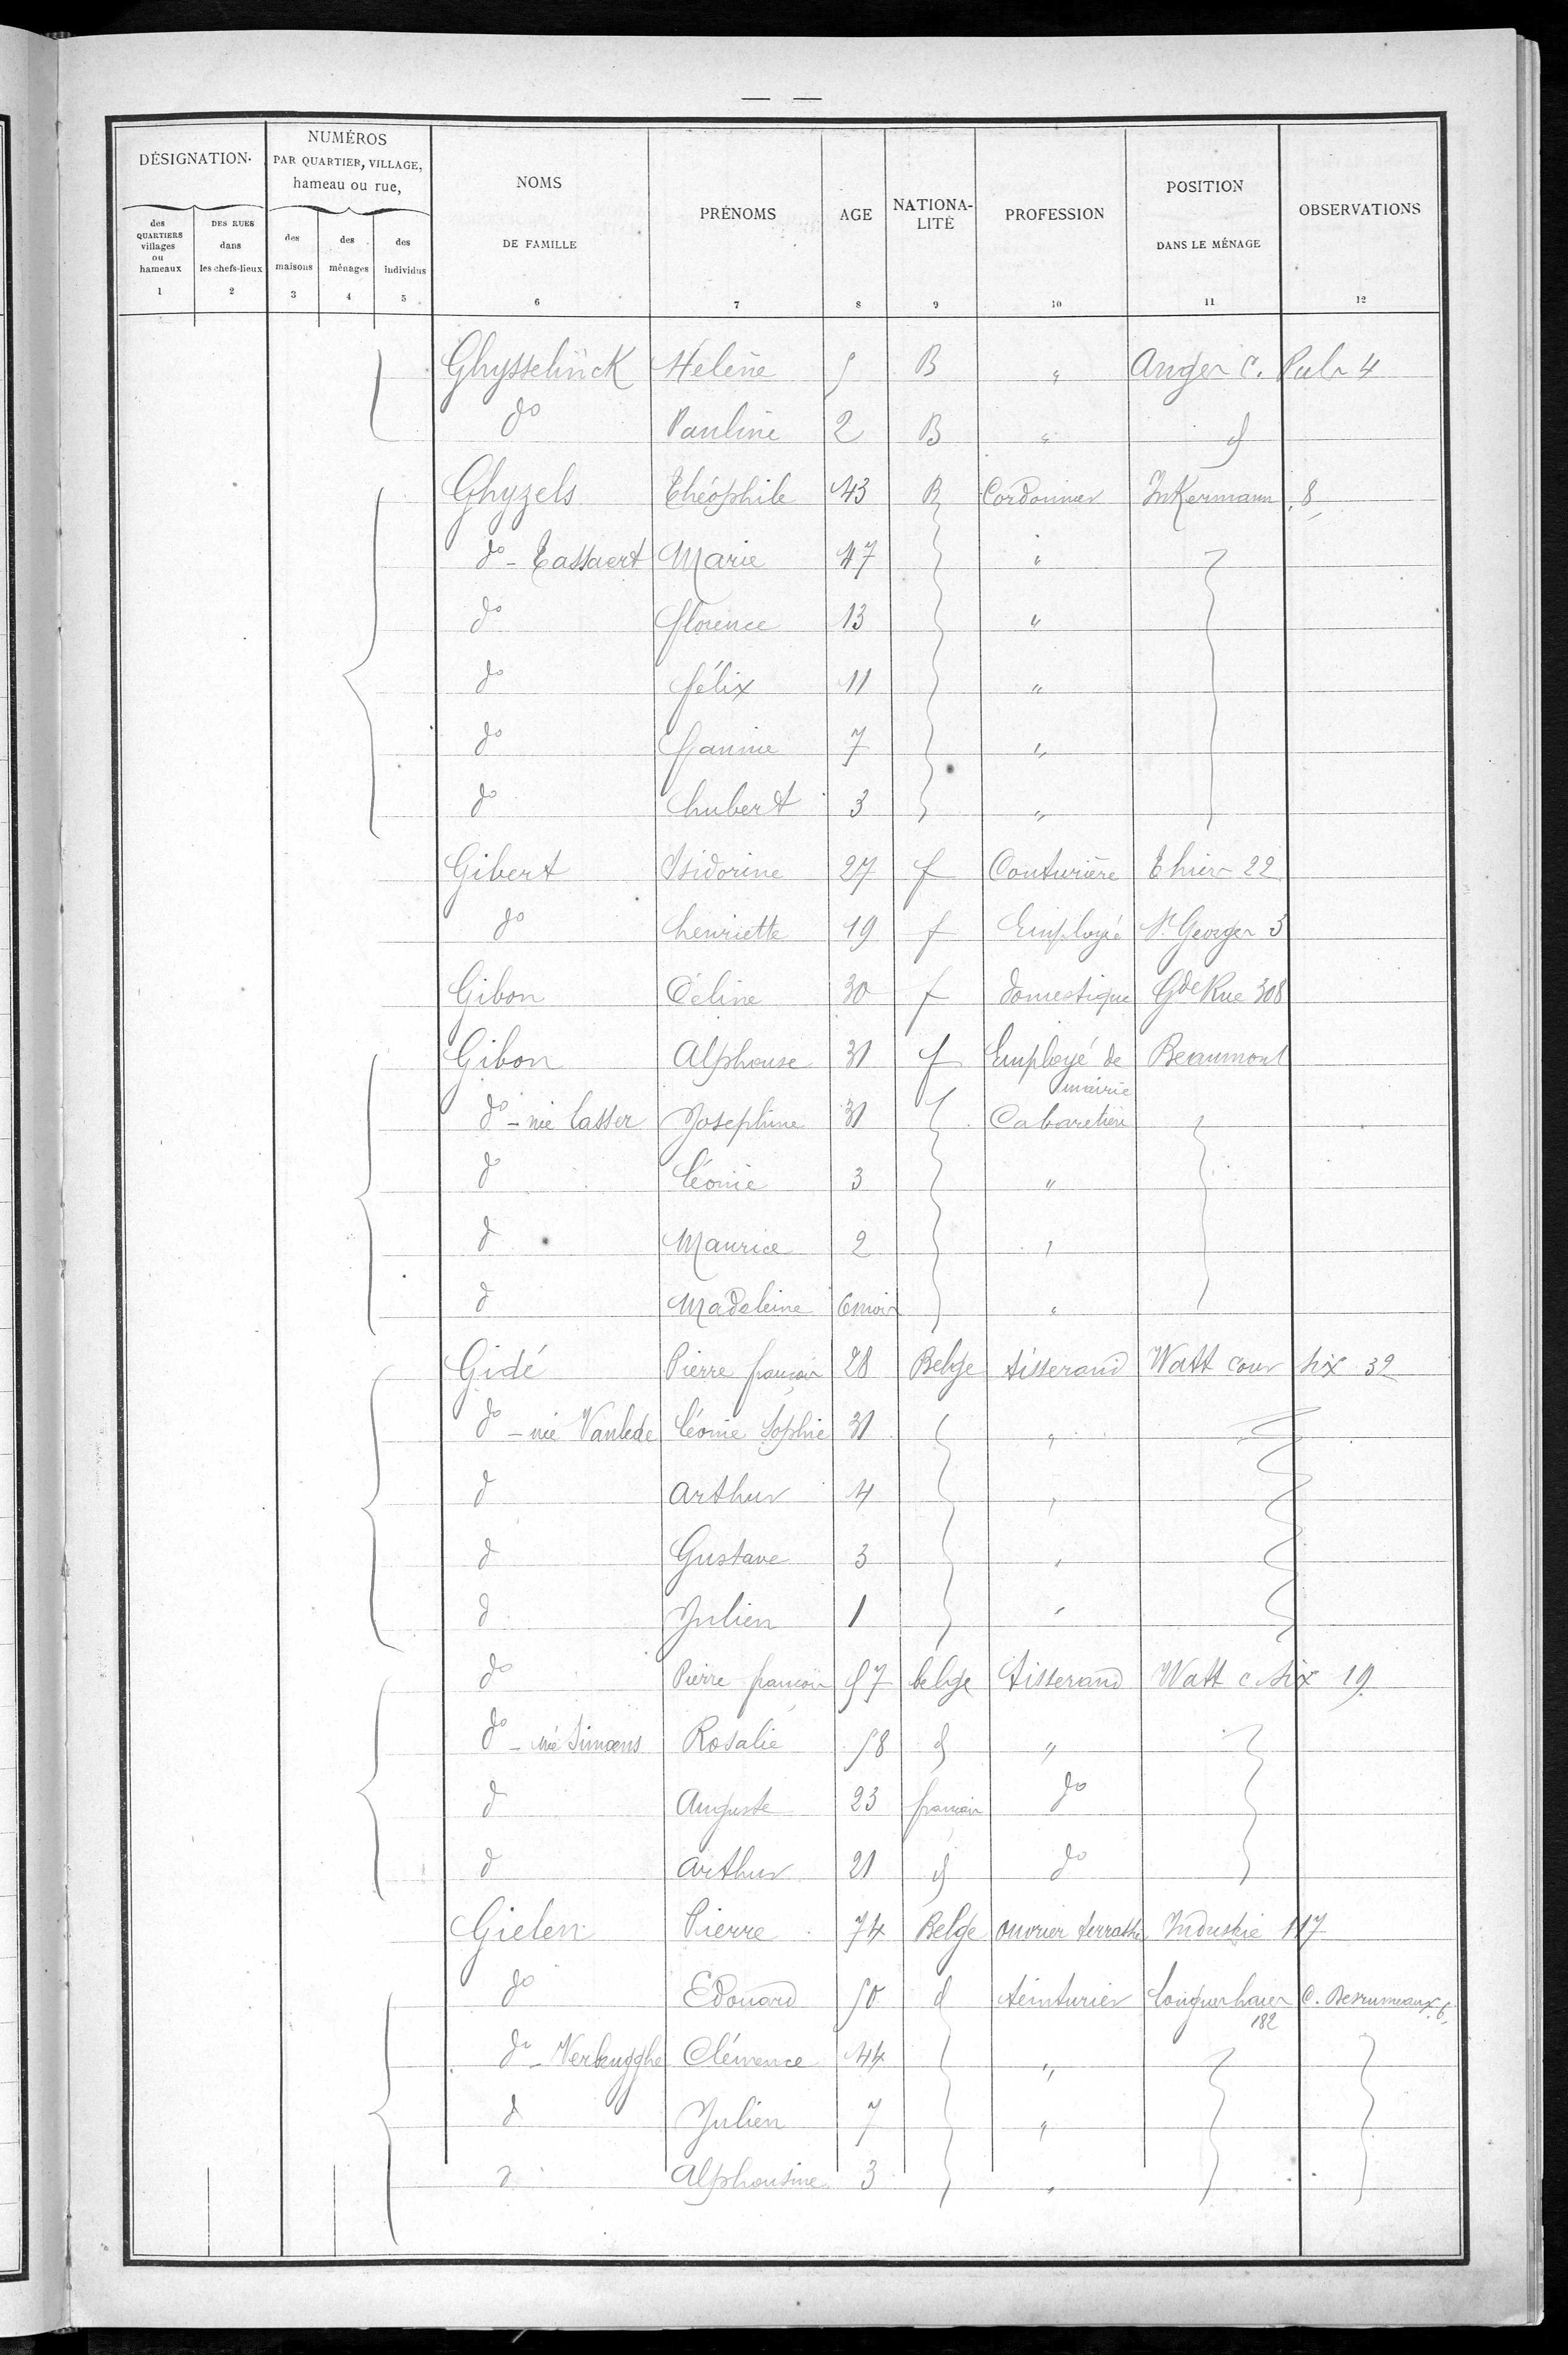 — —
DÉSIGNATION
NUMÉROS
PAR QUARTIER, VILLAGE,
hameau ou rue,
NOMS
DE FAMILLE
PRÉNOMS
AGE
NATIONA-
LITÉ
PROFESSION
POSITION
DANS LE MÉNAGE
OBSERVATIONS
des
QUARTIERS
villages
ou
hameaux
DES RUES
dans
les chefs-lieux
des
maisons
des
ménages
des
individus
1 2 3 4 5 6 7 8 9 10 11 12
Ghysselinck Helène 5 B " Anger C. Pub 4
do Pauline 2 B " d
Ghyzels Théophile 43 B Cordonnier Inkermann 8
do - Tassaert Marie 47 "
do florence 13 "
do félix 11 "
do fannie 7 "
do hubert 3 "
Gibert Isidorine 27 f Couturière Thier 22
do henriette 19 f Employée St Georges 3
Gibon Céline 30 f domestique Gde Rue 308
Gibon Alphonse 31 f Employé de Beaumont
mairie
do - née Casser Josephine 31 Cabaretière
d Léonie 3 "
d Maurice 2 "
d Madeleine 6 mois "
Gidé Pierre françois 28 Belge tisserand Watt cour Six 32
do - née Vanlede Léonie Sophie 31 "
d Arthur 4 "
d Gustave 3 "
d Julien 1 "
do Pierre françois 57 belge tisserand Watt c Six 19
do - née Simoens Rosalie 58 d "
d Auguste 23 français do
d Arthur 21 d do
Gielen Pierre 74 Belge ouvrier Industrie 117
do Edouard 50 d teinturier Longues haies C. Desrumeaux 6
182
do - Clémence 44 "
d Julien 7 "
d Alphonsine 3 "